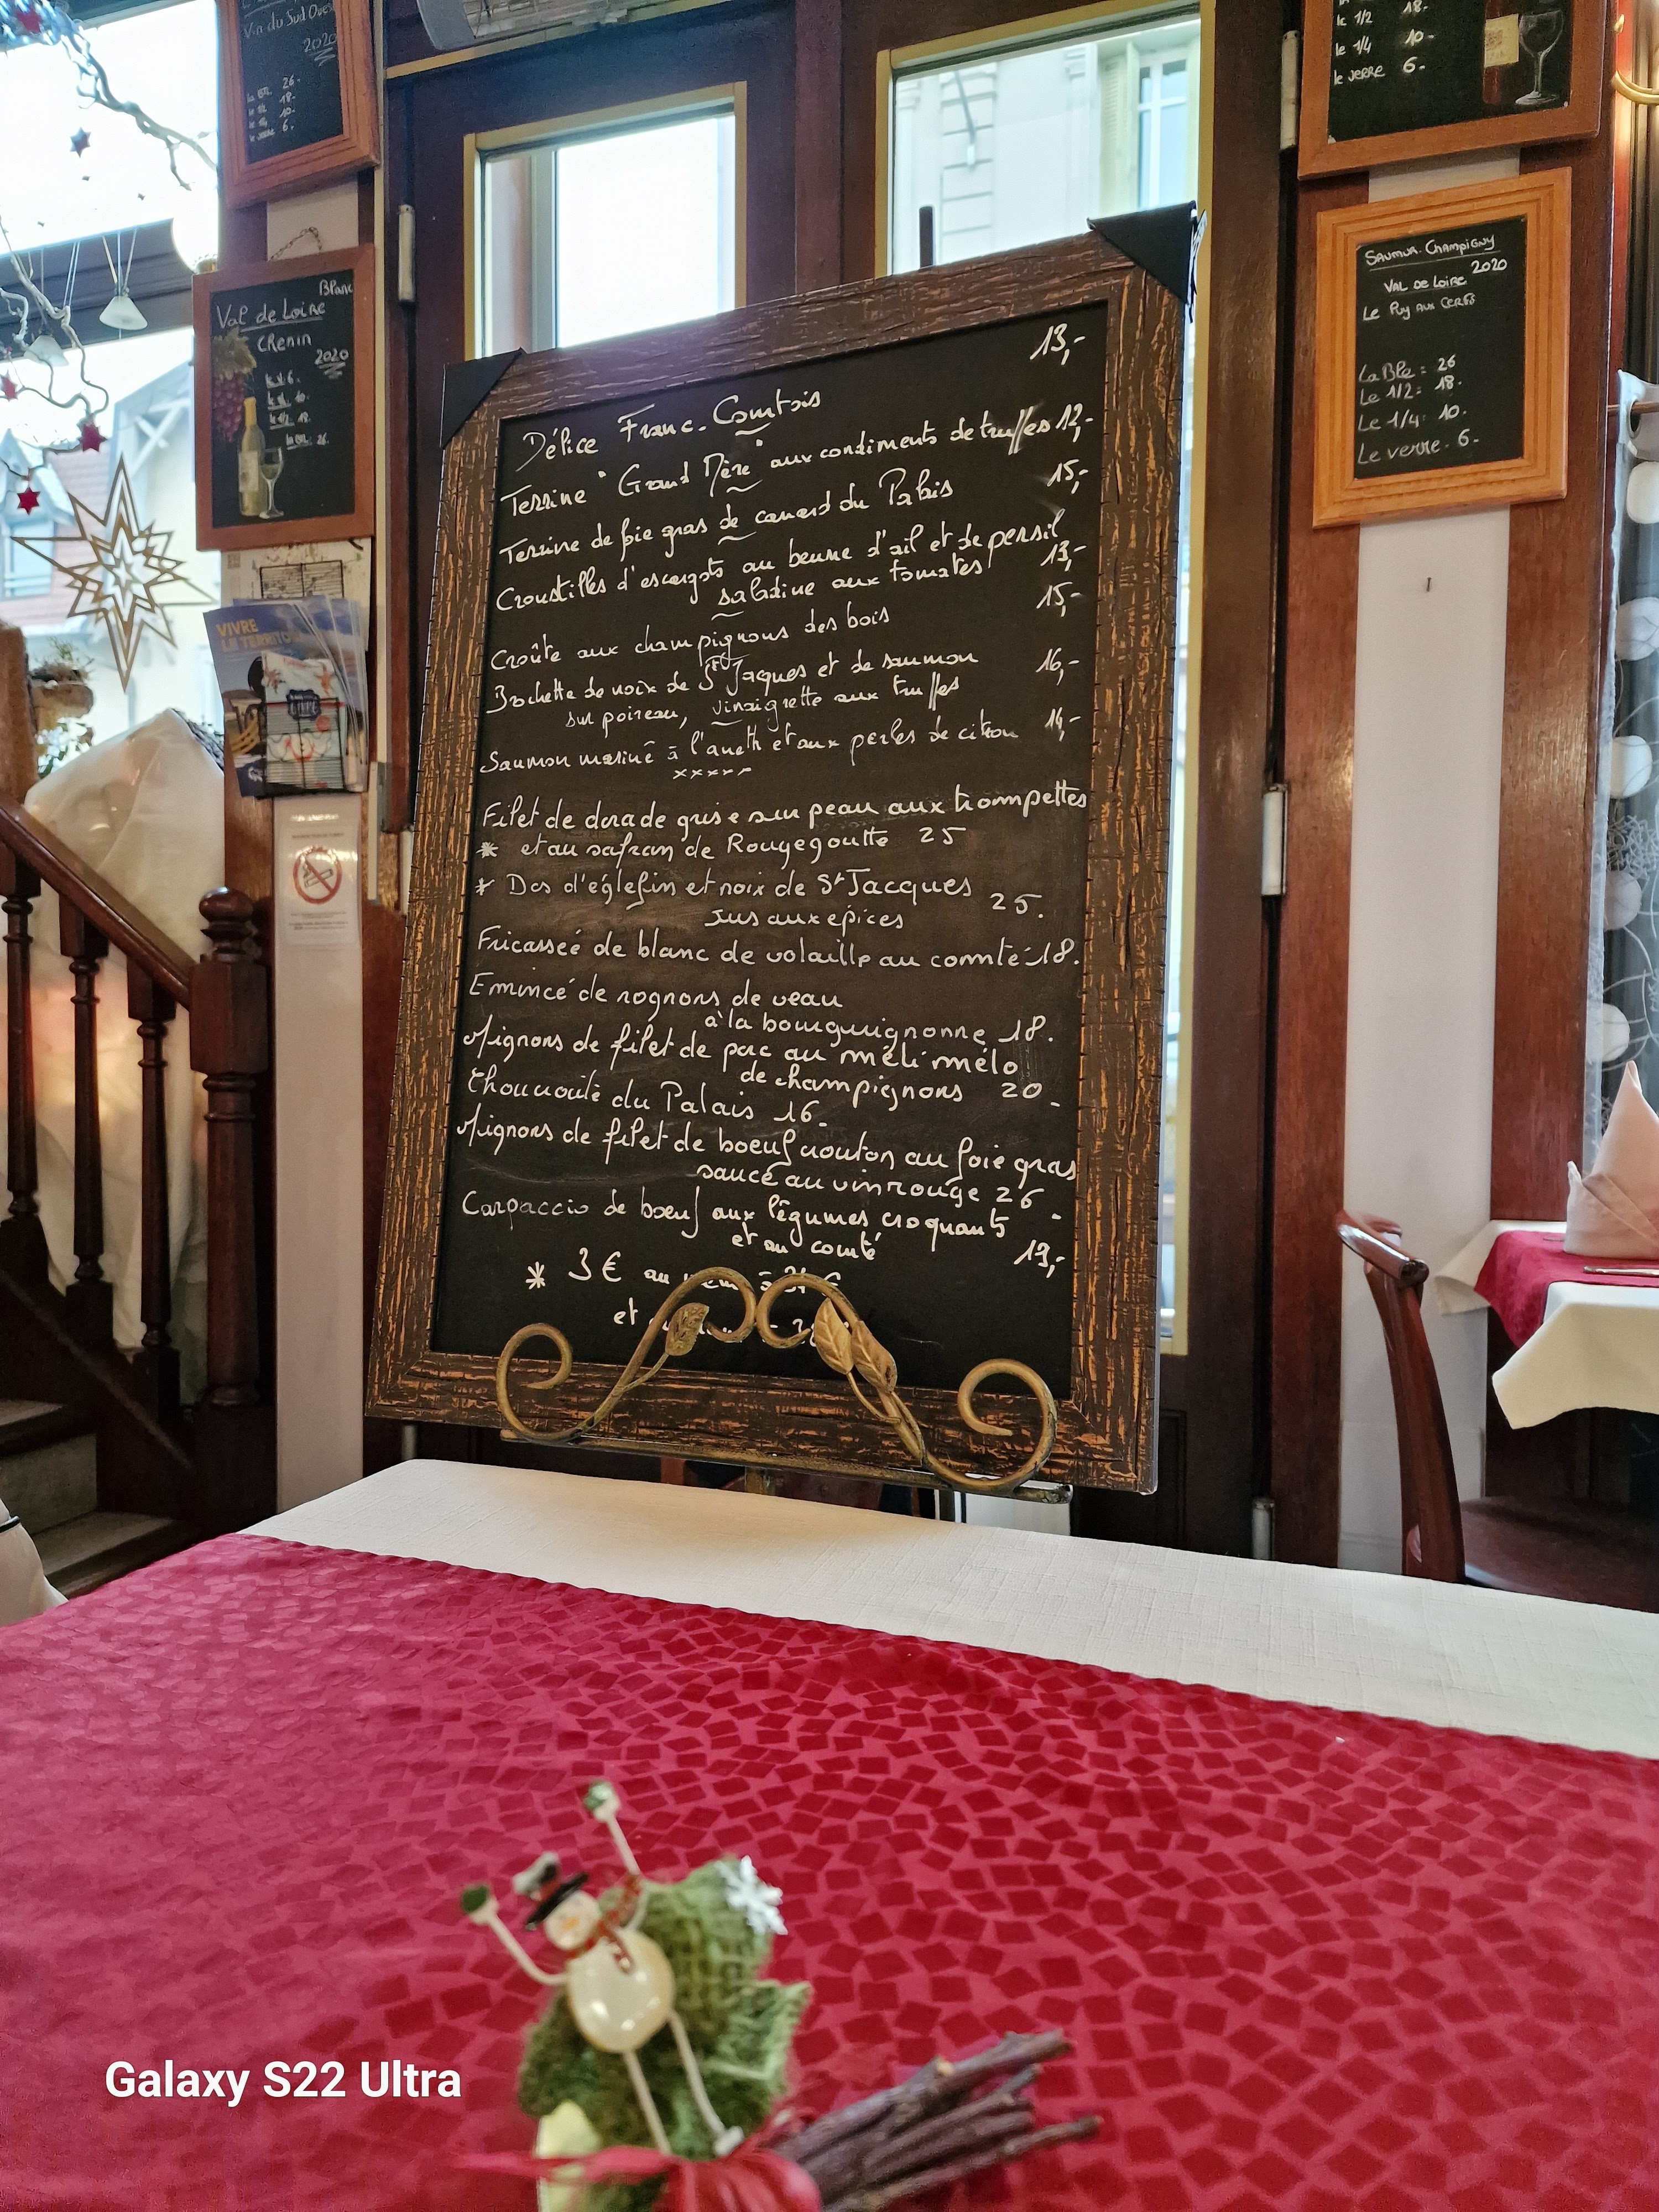 Vin du Sud Ouest
2020
26-
18-
10-
6-
le 1/2 18-
le 1/4 10-
le verre 6-
Blanc
Val de Loire
Chenin
2020
6.
10.
le 1/2 18.
26.
Saumur-Champigny
Val de Loire 2020
Le Puy aux Cerfs
La Ble = 26
Le 1/2 = 18.
Le 1/4: 10.
Le verre. 6-
VIVRE
LE TERRITO
Délice Franc-Comtois 13,-
Terrine "Grand Mère" aux condiments de truffes 12,-
Terrine de foie gras de canard du Palais 15,-
Croustilles d'escargots au beurre d'ail et de persil
saladine aux tomates 13,-
Croûte aux champignons des bois 15,-
Brochette de noix de St Jaques et de saumon
sur poireau, vinaigrette aux truffes 16,-
Saumon mariné à l'aneth et aux perles de citron 14,-
xxxxx
Filet de dorade grise sur peau aux trompettes
* et au safran de Rougegoutte 25
* Dos d'églefin et noix de St Jacques
Jus aux épices 25.
Fricasseé de blanc de volaille au comté 18.
Emincé de rognons de veau
à la bourguignonne 18.
Mignons de filet de porc au méli mélo
de champignons 20-
Choucoute du Palais 16-
Mignons de filet de boeuf crouton au foie gras
sauce au vin rouge 26-
Carpaccio de boeuf aux légumes croquants
et au comté 13,-
* 3€ au
et
Galaxy S22 Ultra